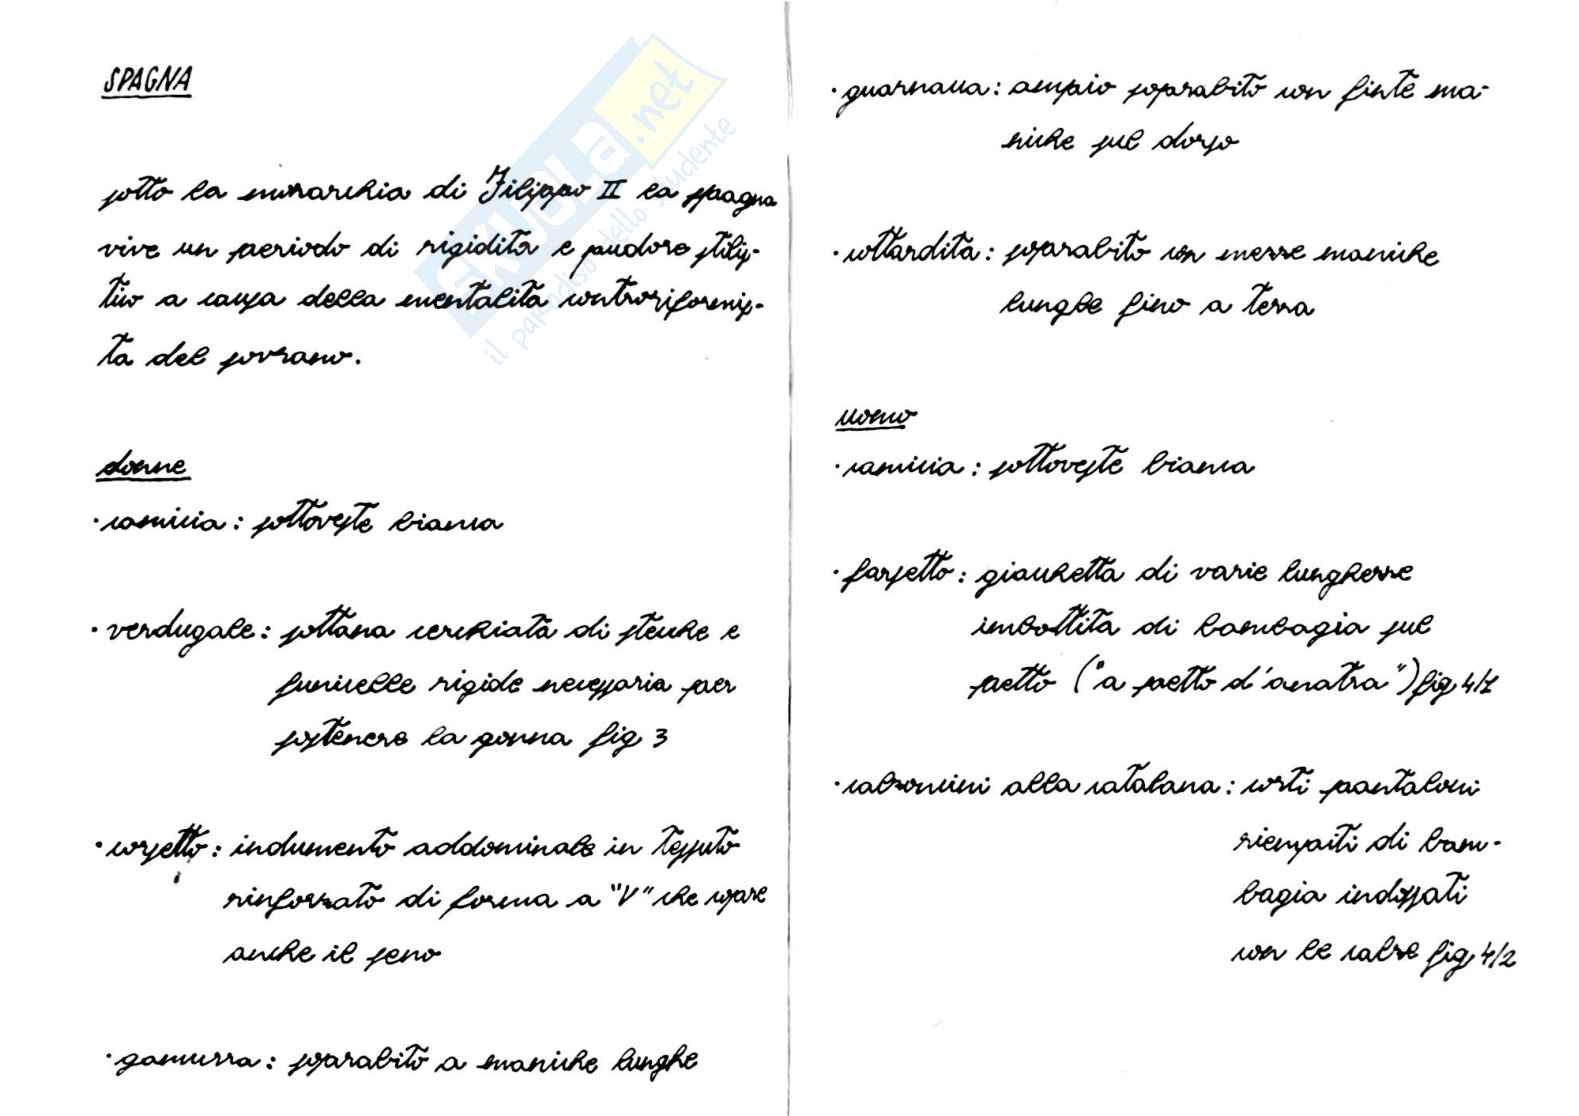 SPAGNA
sotto la monarchia di Filippo II la spagna
vive un periodo di rigidità e pudore stilis-
tico a causa della mentalità controriformis-
ta del sovrano.
donne
· camicia: sottoveste bianca
· verdugale: sottana cerchiata di stecche e
funicelle rigide necessaria per
sostenere la gonna fig 3
· corsetto: indumento addominale in tessuto
rinforzato di forma a "V" che copre
anche il seno
· gamurra: soprabito a maniche lunghe
· guarnacca: ampio soprabito con finte ma-
niche sul dorso
· cottardita: soprabito con mezze maniche
lunghe fino a terra
uomo
· camicia: sottoveste bianca
· farsetto: giacchetta di varie lunghezze
imbottita di bambagia sul
petto ("a petto d'anatra") fig 4/1
· calzoncini alla catalana: corti pantaloni
riempiti di bam-
bagia indossati
con le calze fig 4/2
SKUOLA.net
il paradiso dello studente